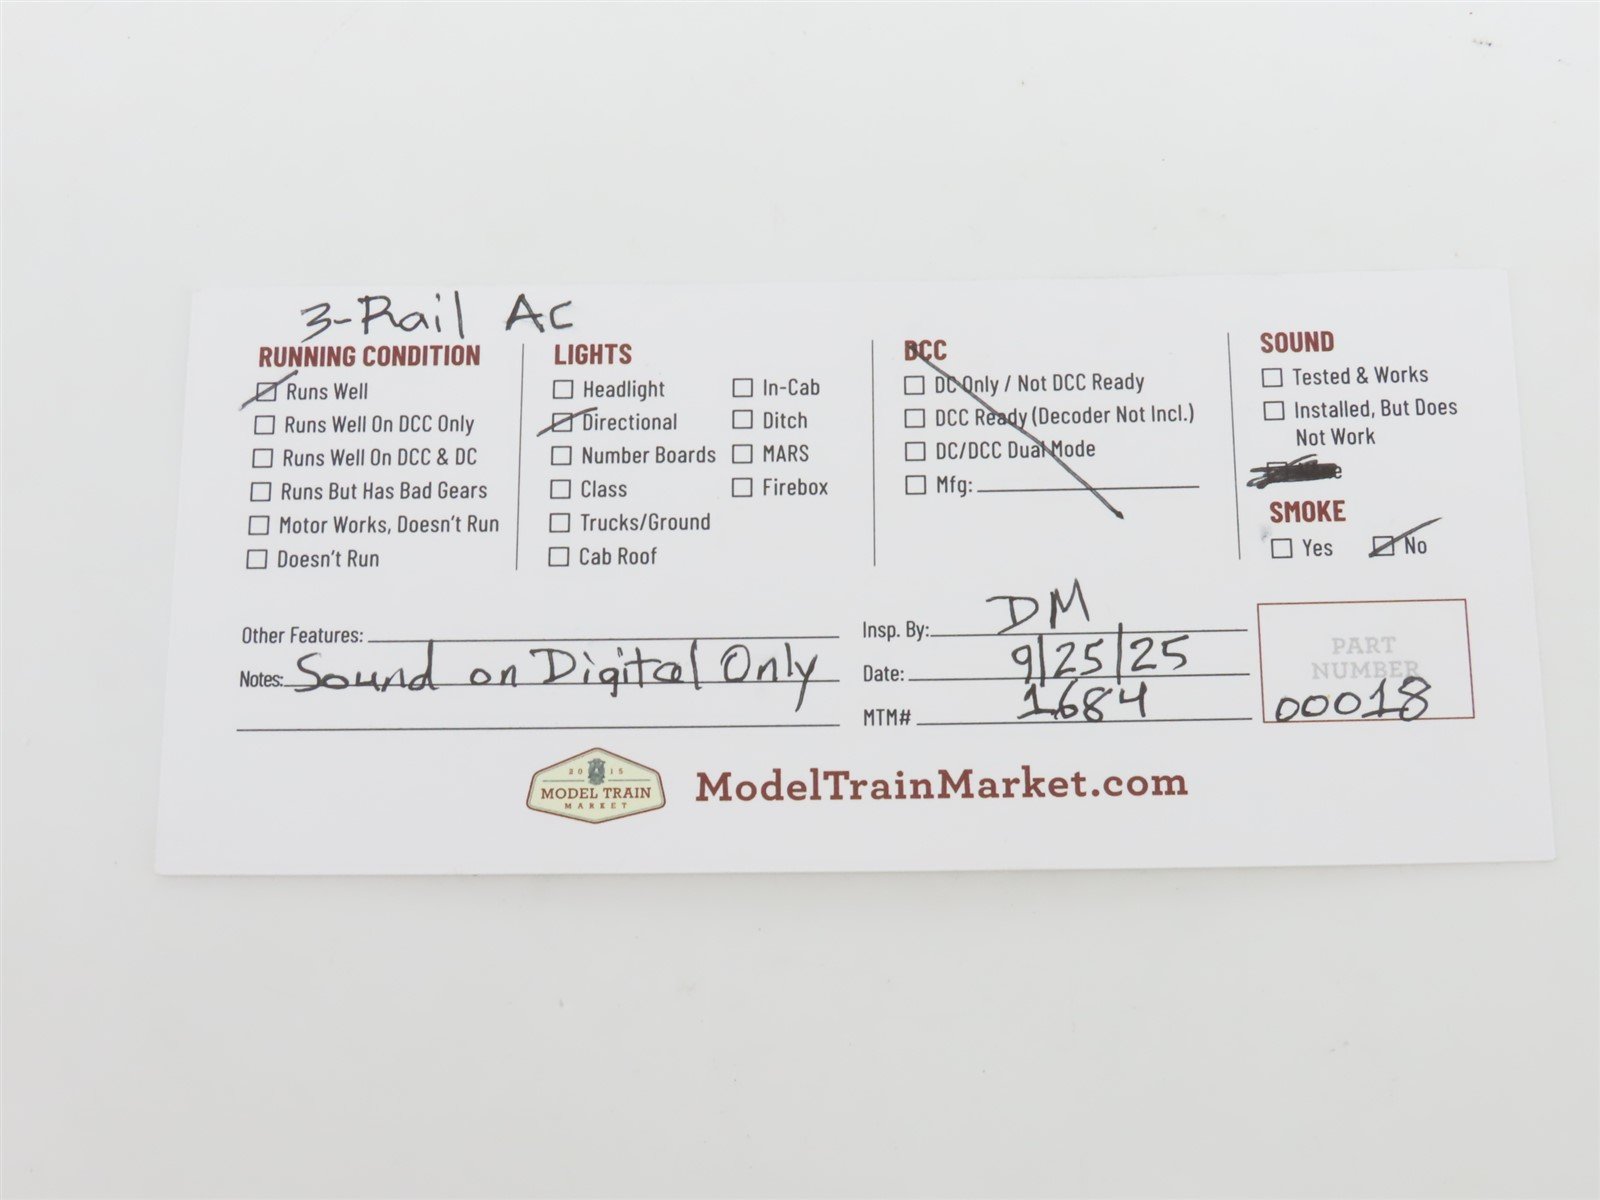 3-Rail AC
RUNNING CONDITION
Runs Well
Runs Well On DCC Only
Runs Well On DCC & DC
Runs But Has Bad Gears
Motor Works, Doesn't Run
Doesn't Run
LIGHTS
Headlight
Directional
Number Boards
Class
Trucks/Ground
Cab Roof
In-Cab
Ditch
MARS
Firebox
DCC
DC Only / Not DCC Ready
DCC Ready (Decoder Not Incl.)
DC/DCC Dual Mode
Mfg:
SOUND
Tested & Works
Installed, But Does
Not Work
SMOKE
Yes No
Other Features:
Notes: Sound on Digital Only
Insp. By: DM
Date: 9/25/25
MTM# 1684
PART
NUMBER
00018
2015
MODEL TRAIN
MARKET
ModelTrainMarket.com